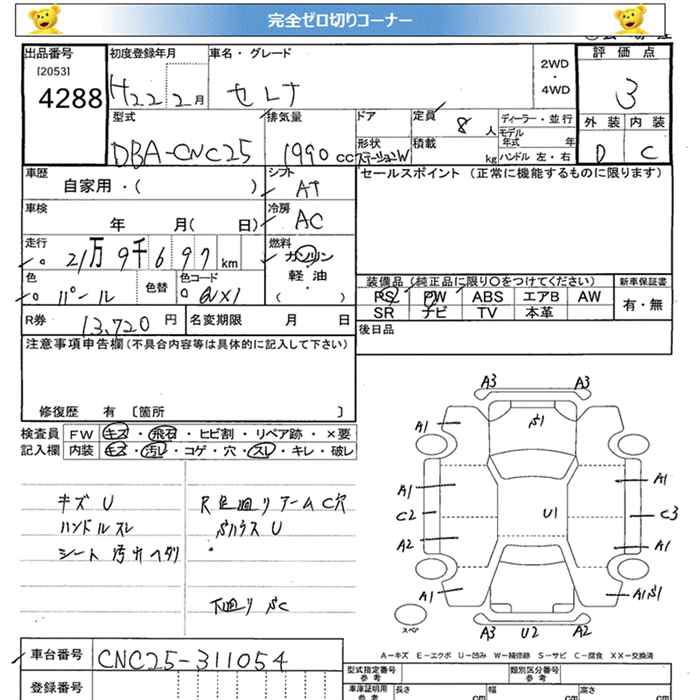 完全ゼロ切りコーナー
出品番号 初度登録年月 車名・グレード 2WD・4WD 評価点
[2053]
4288 H22 2月 セレナ 3
型式 排気量 ドア 定員 8 人 ディーラー・並行 外装 内装
モデル年式 年
DBA-CNC25 1990 cc 形状 ステーションW 積載 kg ハンドル 左・右 D C
車歴 シフト セールスポイント (正常に機能するものに限ります)
自家用・( ) AT
車検 冷房
年 月( 日) AC
走行 燃料
21万9千697 km ガソリン
軽油
・
( )
色 色替 色コード 装備品(純正品に限り○をつけてください) 新車保証書
パール QX1 PS PW ABS エアB AW 有・無
SR ナビ TV 本革
R券 13,720 円 名変期限 月 日 後日品
注意事項申告欄(不具合内容等は具体的に記入して下さい)
修復歴 有 〔箇所 〕
検査員 FW キズ・飛石・ヒビ割・リペア跡・×要
記入欄 内装 キズ・汚レ・コゲ・穴・スレ・キレ・破レ
キズ U
ハンドルスレ
シート 汚レ ヘタリ
C穴
U
下回り
A3 A3
A1
A1 A1
C2 U1 C3
A2 A1
A1 A1
スペア
A3 U2 A2
A―キズ E―エクボ U―凹み W―補修跡 S―サビ C―腐食 XX―交換済
車台番号 CNC25-311054
登録番号
型式指定番号 参考 類別区分番号 参考
車庫証明用 参考 長さ cm 幅 cm 高さ cm